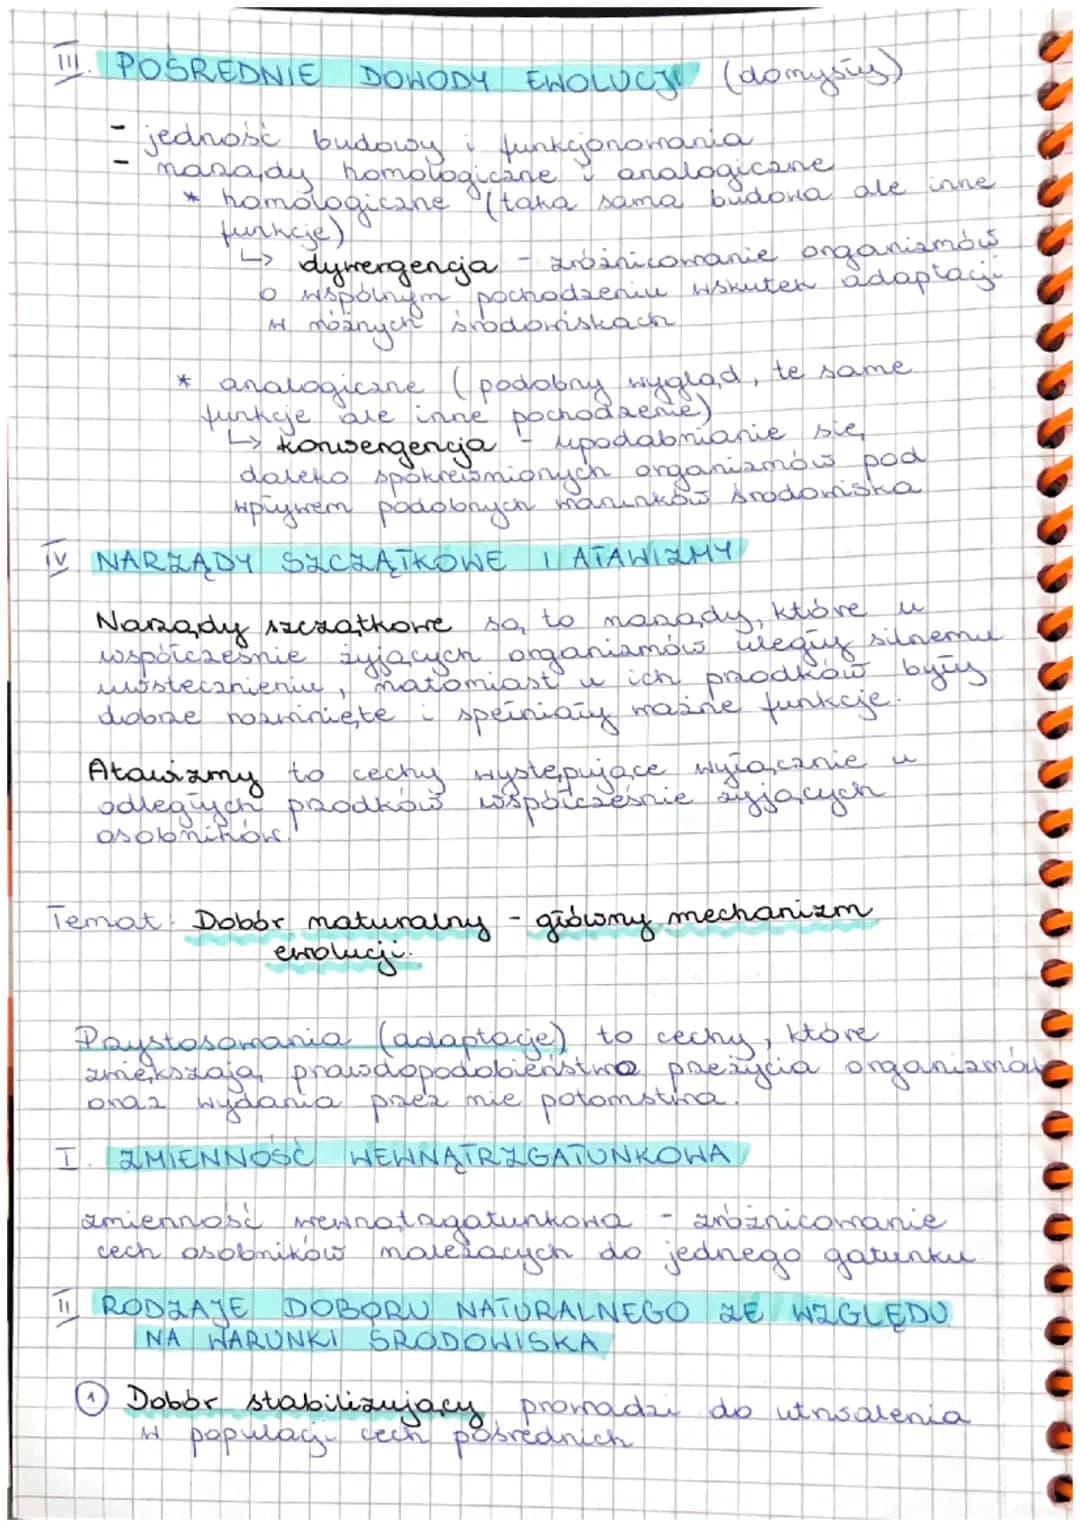 III. POŚREDNIE DOWODY EWOLUCJI (domysły)
- jedność budowy i funkcjonowania
- narządy homologiczne i analogiczne
* homologiczne (taka sama budowa ale inne
funkcje)
↳ dywergencja - zróżnicowanie organizmów
o wspólnym pochodzeniu wskutek adaptacji
w różnych środowiskach
* analogiczne (podobny wygląd, te same
funkcje ale inne pochodzenie)
↳ konwergencja - upodabnianie się
daleko spokrewnionych organizmów pod
wpływem podobnych warunków środowiska
IV NARZĄDY SZCZĄTKOWE I ATAWIZMY
Narządy szczątkowe są to narządy, które u
współcześnie żyjących organizmów uległy silnemu
uwstecznieniu, natomiast u ich przodków były
dobrze rozwinięte i spełniały ważne funkcje.
Atawizmy to cechy występujące wyłącznie u
odległych przodków współcześnie żyjących
osobników.
Temat: Dobór naturalny - główny mechanizm
ewolucji.
Przystosowania (adaptacje) to cechy, które
zwiększają prawdopodobieństwo przeżycia organizmów
oraz wydania przez nie potomstwa.
I. ZMIENNOŚĆ WEWNĄTRZGATUNKOWA
zmienność wewnątrzgatunkowa - zróżnicowanie
cech osobników należących do jednego gatunku
II RODZAJE DOBORU NATURALNEGO ZE WZGLĘDU
NA WARUNKI ŚRODOWISKA
1 Dobór stabilizujący prowadzi do utrwalenia
w populacji cech pośrednich